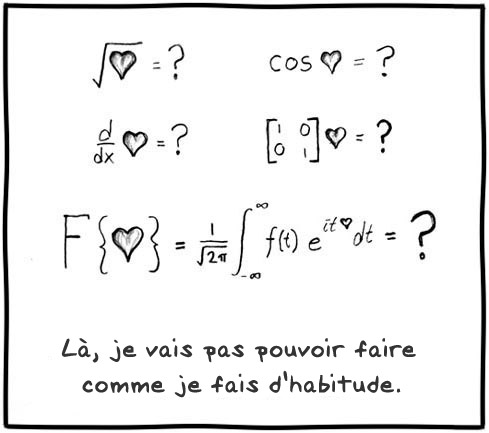 √♥ = ?
cos ♥ = ?
d/dx ♥ = ?
[1 0
0 1] ♥ = ?
F{♥} = 1/√2π ∫-∞^∞ f(t) e^it♥ dt = ?
Là, je vais pas pouvoir faire
comme je fais d'habitude.